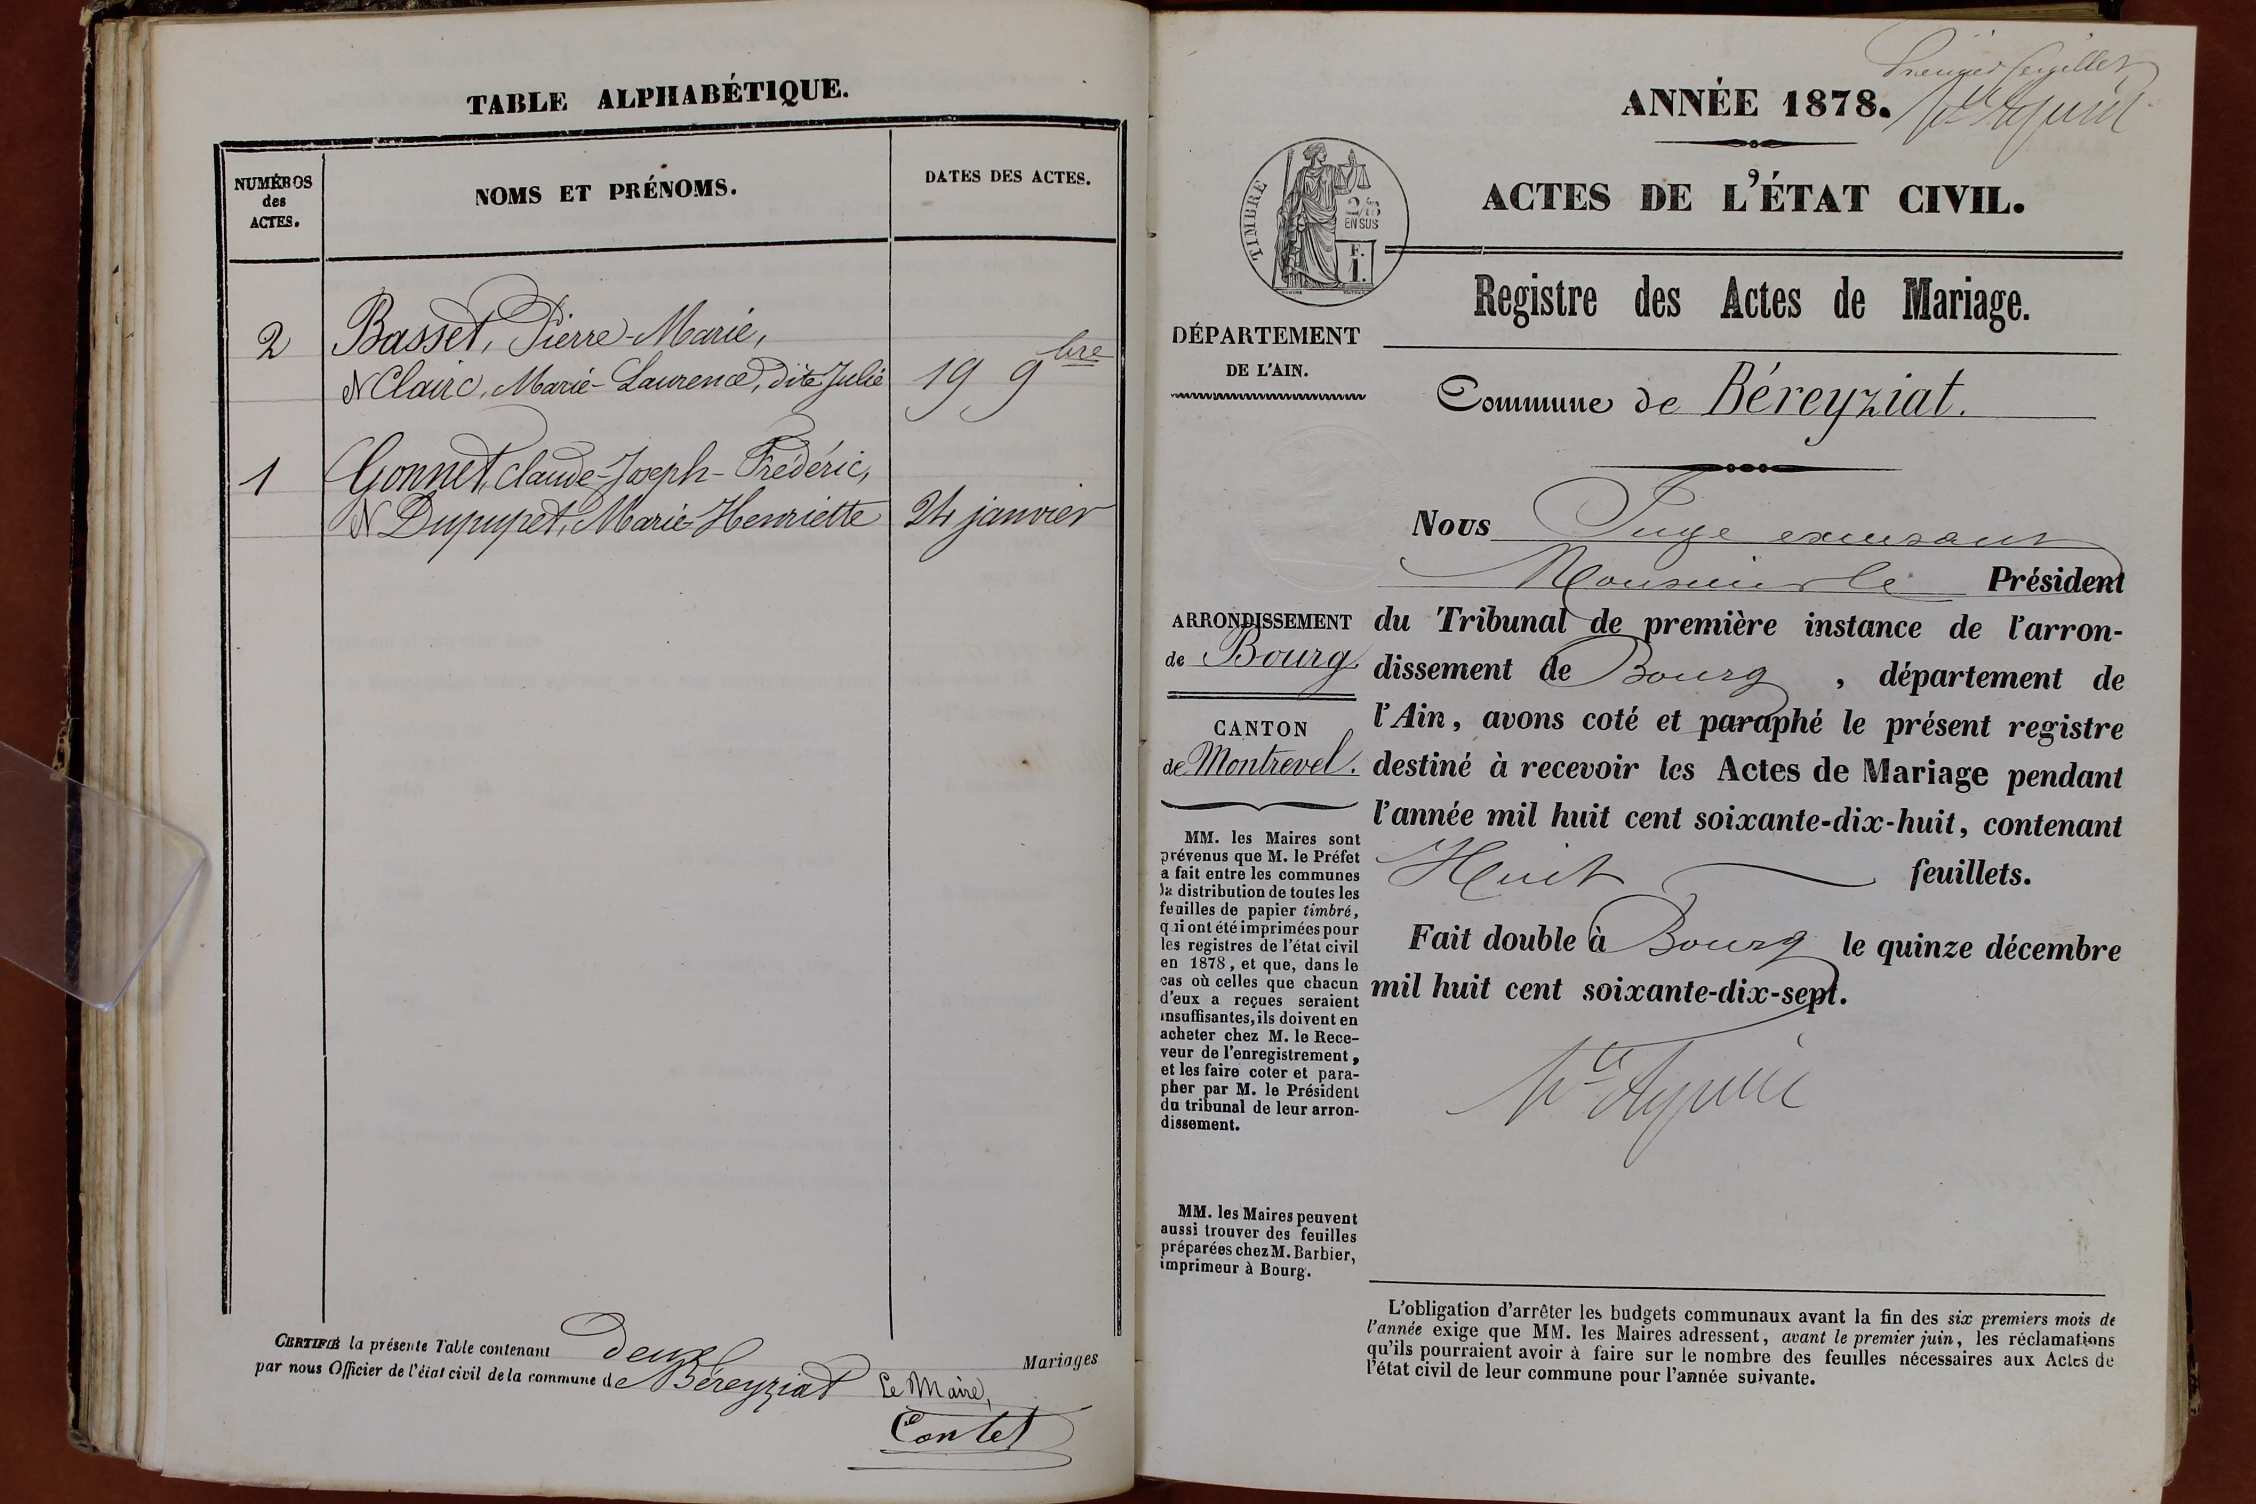 TABLE ALPHABÉTIQUE.
NUMÉROS
des
ACTES.
NOMS ET PRÉNOMS.
DATES DES ACTES.
2
Basset, Pierre-Marie,
N Clair, Marie-Laurence, dite Julie
19 9bre
1
Gonnet, Claude-Joseph-Frédéric,
N Dupupet, Marie-Henriette
24 janvier
CERTIFIÉ la présente Table contenant deux Mariages
par nous Officier de l'état civil de la commune de Béreyziat Le Maire,
Contet
Premier feuillet
ANNÉE 1878.
ACTES DE L'ÉTAT CIVIL.
TIMBRE
EN SUS
F.
1.
Registre des Actes de Mariage.
DÉPARTEMENT
DE L'AIN.
Commune de Béreyziat.
Nous Juge excusant
Monsieur le Président
du Tribunal de première instance de l'arron-
dissement de Bourg, département de
l'Ain, avons coté et paraphé le présent registre
destiné à recevoir les Actes de Mariage pendant
l'année mil huit cent soixante-dix-huit, contenant
Huit feuillets.
Fait double à Bourg le quinze décembre
mil huit cent soixante-dix-sept.
ARRONDISSEMENT
de Bourg
CANTON
de Montrevel.
MM. les Maires sont
prévenus que M. le Préfet
a fait entre les communes
la distribution de toutes les
feuilles de papier timbré,
qui ont été imprimées pour
les registres de l'état civil
en 1878, et que, dans le
cas où celles que chacun
d'eux a reçues seraient
insuffisantes, ils doivent en
acheter chez M. le Rece-
veur de l'enregistrement,
et les faire coter et para-
pher par M. le Président
du tribunal de leur arron-
dissement.
MM. les Maires peuvent
aussi trouver des feuilles
préparées chez M. Barbier,
imprimeur à Bourg.
L'obligation d'arrêter les budgets communaux avant la fin des six premiers mois de
l'année exige que MM. les Maires adressent, avant le premier juin, les réclamations
qu'ils pourraient avoir à faire sur le nombre des feuilles nécessaires aux Actes de
l'état civil de leur commune pour l'année suivante.